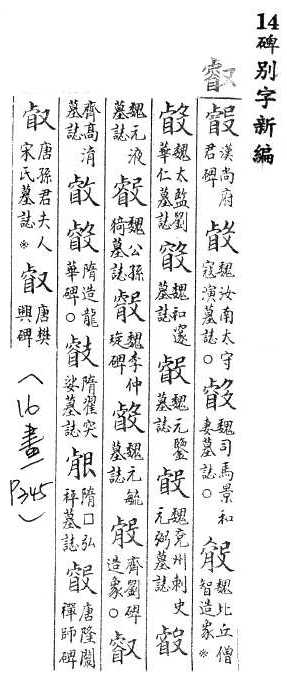 14碑別字新編
叡
漢尚府君碑 魏汝南太守寇演墓誌。 魏司馬景和妻墓誌。 魏比丘僧智造象※
魏太監劉華仁墓誌 魏和邃墓誌 魏元鑒墓誌 魏兗州刺史元弼墓誌
魏元液墓誌 魏公孫猗墓誌 魏李仲琁碑 魏元毓墓誌 齊劉碑造象。 叡
齊高淯墓誌 隋造龍華碑。 隋翟突娑墓誌 隋□弘秤墓誌 唐隆闡禪師碑
唐孫君夫人宋氏墓誌※ 叡 唐樊興碑 (16畫 P345)